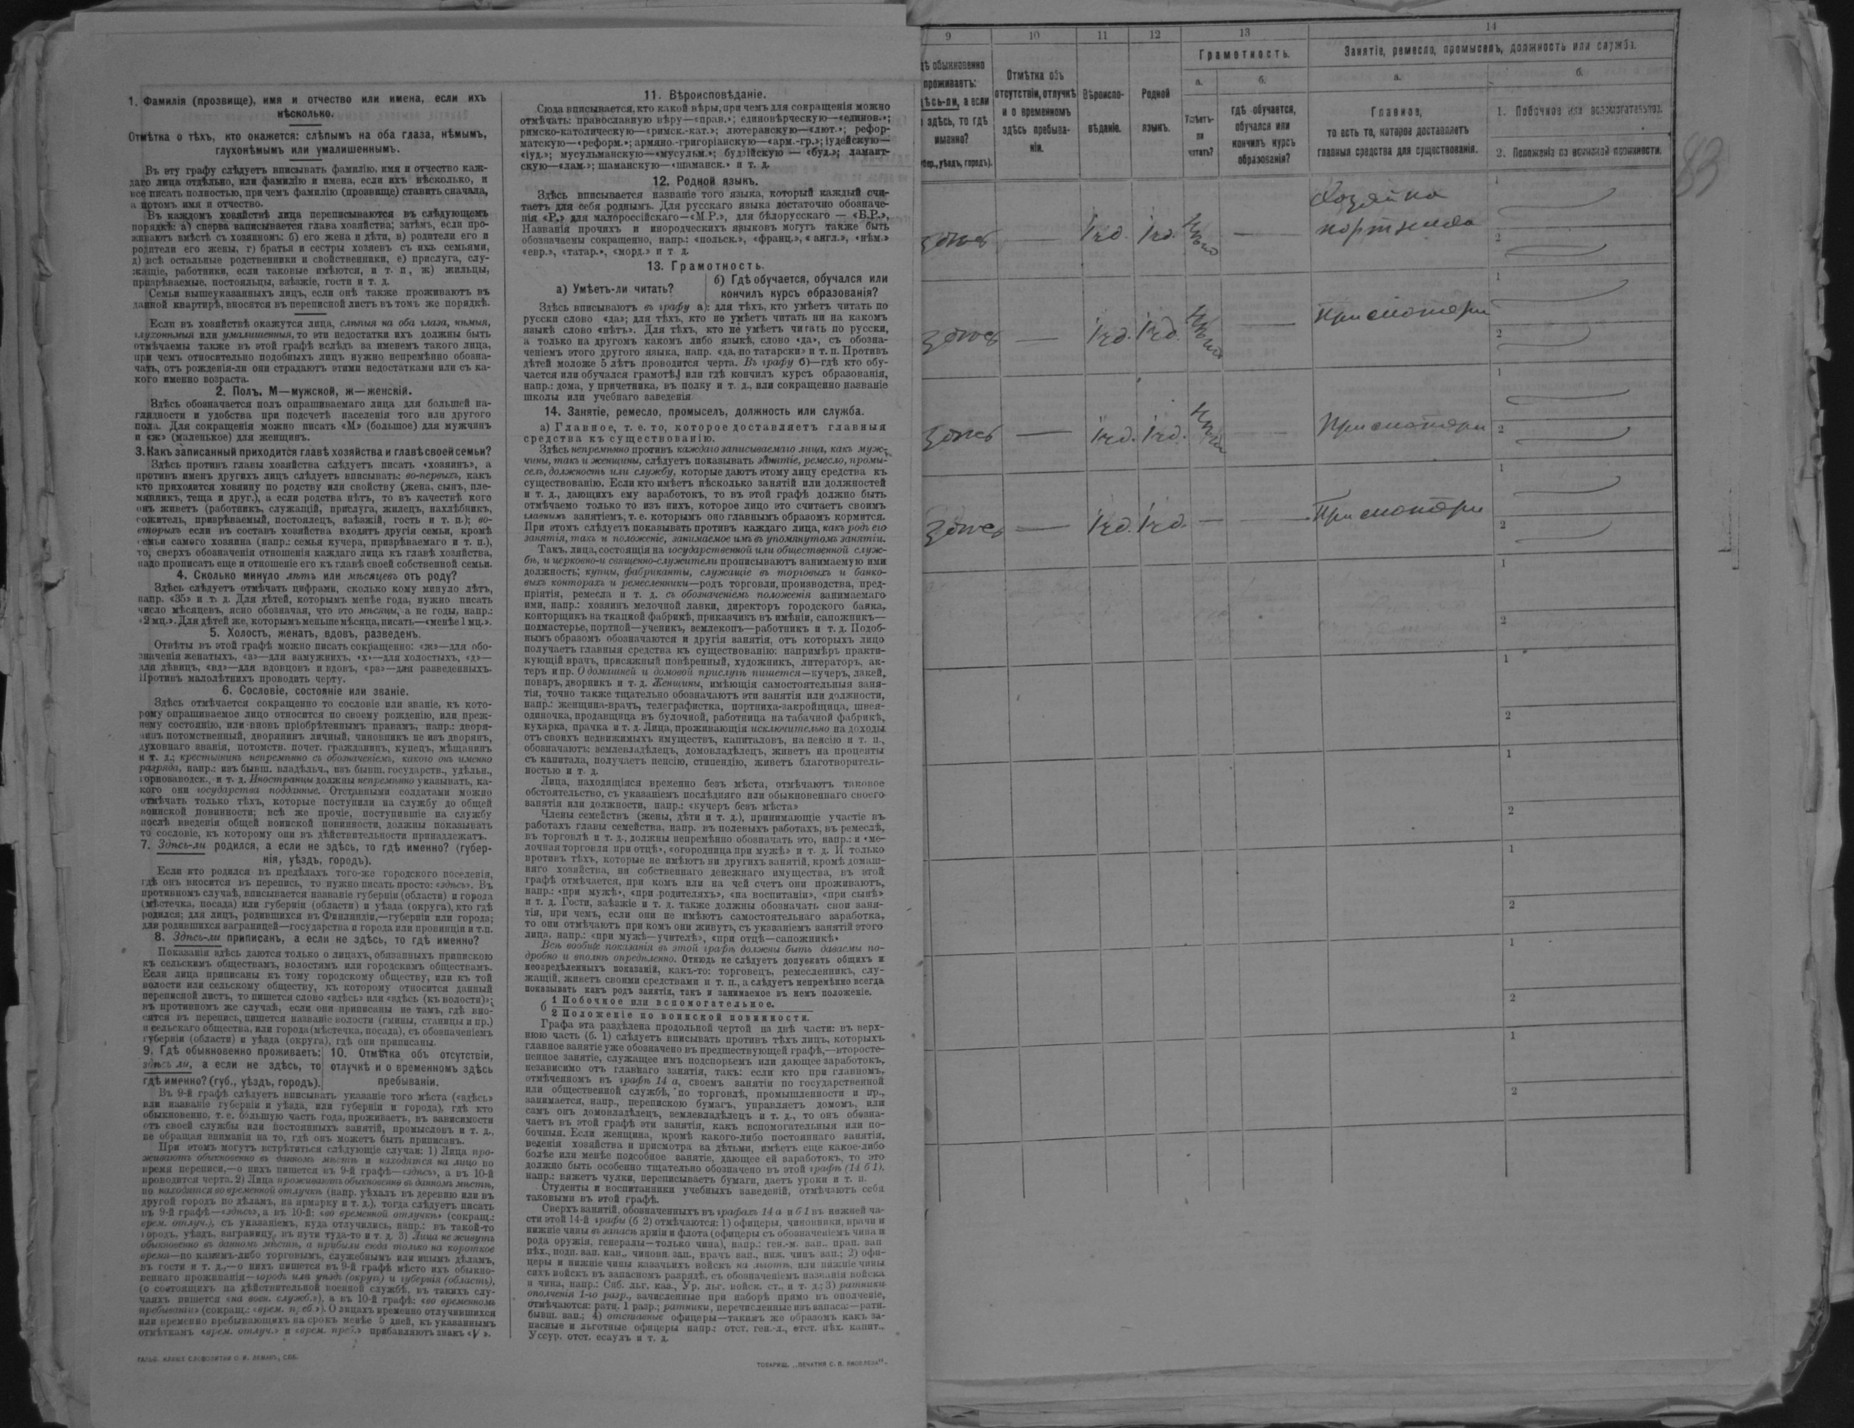 1. Фамилія (прозвище), имя и отчество или имена, если ихъ
нѣсколько.
Отмѣтка о тѣхъ, кто окажется: слѣпымъ на оба глаза, нѣмымъ,
глухонѣмымъ или умалишеннымъ.
Въ эту графу слѣдуетъ вписывать фамилію, имя и отчество каж-
даго лица отдѣльно, или фамилію и имена, если ихъ нѣсколько, и
все писать полностью, при чемъ фамилію (прозвище) ставить сначала,
а потомъ имя и отчество.
Въ каждомъ хозяйствѣ лица переписываются въ слѣдующемъ
порядкѣ: а) сперва записывается глава хозяйства; затѣмъ, если про-
живаютъ вмѣстѣ съ хозяиномъ: б) его жена и дѣти, в) родители его и
родители его жены, г) братья и сестры хозяевъ съ ихъ семьями,
д) всѣ остальные родственники и свойственники, е) прислуга, слу-
жащіе, работники, если таковые имѣются, и т. п., ж) жильцы,
призрѣваемые, постояльцы, заѣзжіе, гости и т. д.
Семьи вышеуказанныхъ лицъ, если онѣ также проживаютъ въ
данной квартирѣ, вносятся въ переписной листъ въ томъ же порядкѣ.
Если въ хозяйствѣ окажутся лица, слѣпыя на оба глаза, нѣмыя,
глухонѣмыя или умалишенныя, то эти недостатки ихъ должны быть
отмѣчаемы также въ этой графѣ вслѣдъ за именемъ такого лица,
при чемъ относительно подобныхъ лицъ нужно непремѣнно обозна-
чать, отъ рожденія-ли они страдаютъ этими недостатками или съ ка-
кого именно возраста.
2. Полъ. М—мужской, ж—женскій.
Здѣсь обозначается полъ опрашиваемаго лица для большей на-
глядности и удобства при подсчетѣ населенія того или другого
пола. Для сокращенія можно писать «М» (большое) для мужчинъ
и «ж» (маленькое) для женщинъ.
3. Какъ записанный приходится главѣ хозяйства и главѣ своей семьи?
Здѣсь противъ главы хозяйства слѣдуетъ писать «хозяинъ», а
противъ именъ другихъ лицъ слѣдуетъ вписывать: во-первыхъ, какъ
кто приходится хозяину по родству или свойству (жена, сынъ, пле-
мянникъ, теща и друг.), а если родства нѣтъ, то въ качествѣ кого
онъ живетъ (работникъ, служащій, прислуга, жилецъ, нахлѣбникъ,
сожитель, призрѣваемый, постоялецъ, заѣзжій, гость и т. п.); во-
вторыхъ если въ составъ хозяйства входятъ другія семьи, кромѣ
семьи самого хозяина (напр.: семья кучера, призрѣваемаго и т. п.),
то, сверхъ обозначенія отношенія каждаго лица къ главѣ хозяйства,
надо прописать еще и отношеніе его къ главѣ своей собственной семьи.
4. Сколько минуло лѣтъ или мѣсяцевъ отъ роду?
Здѣсь слѣдуетъ отмѣчать цифрами, сколько кому минуло лѣтъ,
напр. «35» и т. д. Для дѣтей, которымъ менѣе года, нужно писать
число мѣсяцевъ, ясно обозначая, что это мѣсяцы, а не годы, напр.:
«2 мц.». Для дѣтей же, которымъ меньше мѣсяца, писать—«менѣе 1 мц.».
5. Холостъ, женатъ, вдовъ, разведенъ.
Отвѣты въ этой графѣ можно писать сокращенно: «ж»—для обо-
значенія женатыхъ, «з»—для замужнихъ, «х»—для холостыхъ, «д»—
для дѣвицъ, «вд»—для вдовцовъ и вдовъ, «рз»—для разведенныхъ.
Противъ малолѣтнихъ проводить черту.
6. Сословіе, состояніе или званіе.
Здѣсь отмѣчается сокращенно то сословіе или званіе, къ кото-
рому опрашиваемое лицо относится по своему рожденію, или преж-
нему состоянію, или вновь пріобрѣтеннымъ правамъ, напр.: дворя-
нинъ потомственный, дворянинъ личный, чиновникъ не изъ дворянъ,
духовнаго званія, потомств. почет. гражданинъ, купецъ, мѣщанинъ
и т. д.; крестьянинъ непремѣнно съ обозначеніемъ, какого онъ именно
разряда, напр.: изъ бывш. владѣльч., изъ бывш. государств., удѣльн.,
горнозаводск., и т. д. Иностранцы должны непремѣнно указывать, ка-
кого они государства подданные. Отставными солдатами можно
отмѣчать только тѣхъ, которые поступили на службу до общей
воинской повинности; всѣ же прочіе, поступившіе на службу
послѣ введенія общей воинской повинности, должны показывать
то сословіе, къ которому они въ дѣйствительности принадлежатъ.
7. Здѣсь-ли родился, а если не здѣсь, то гдѣ именно? (губер-
нія, уѣздъ, городъ).
Если кто родился въ предѣлахъ того-же городского поселенія,
гдѣ онъ вносится въ перепись, то нужно писать просто: «здѣсь». Въ
противномъ случаѣ, вписывается названіе губерніи (области) и города
(мѣстечка, посада) или губерніи (области) и уѣзда (округа), кто гдѣ
родился; для лицъ, родившихся въ Финляндіи,—губерніи или города;
для родившихся заграницей—государства и города или провинціи и т.п.
8. Здѣсь-ли приписанъ, а если не здѣсь, то гдѣ именно?
Показанія здѣсь даются только о лицахъ, обязанныхъ припискою
къ сельскимъ обществамъ, волостямъ или городскимъ обществамъ.
Если лица приписаны къ тому городскому обществу, или къ той
волости или сельскому обществу, къ которому относится данный
переписной листъ, то пишется слово «здѣсь» или «здѣсь (къ волости)»;
въ противномъ же случаѣ, если они приписаны не тамъ, гдѣ вно-
сятся въ перепись, пишется названіе волости (гмины, станицы и пр.)
и сельскаго общества, или города (мѣстечка, посада), съ обозначеніемъ
губерніи (области) и уѣзда (округа), гдѣ они приписаны.
9. Гдѣ обыкновенно проживаетъ:
здѣсь ли, а если не здѣсь, то
гдѣ именно? (губ., уѣздъ, городъ).
10. Отмѣтка объ отсутствіи,
отлучкѣ и о временномъ здѣсь
пребываніи.
Въ 9-й графѣ слѣдуетъ вписывать указаніе того мѣста («здѣсь»
или названіе губерніи и уѣзда, или губерніи и города), гдѣ кто
обыкновенно, т. е. большую часть года, проживаетъ, въ зависимости
отъ своей службы или постоянныхъ занятій, промысловъ и т. д.,
не обращая вниманія на то, гдѣ онъ можетъ быть приписанъ.
При этомъ могутъ встрѣтиться слѣдующіе случаи: 1) Лица про-
живаютъ обыкновенно въ данномъ мѣстѣ и находятся на лицо во
время переписи,—о нихъ пишется въ 9-й графѣ—«здѣсь», а въ 10-й
проводится черта. 2) Лица проживаютъ обыкновенно въ данномъ мѣстѣ,
но находятся во временной отлучкѣ (напр. уѣхалъ въ деревню или въ
другой городъ по дѣламъ, на ярмарку и т. д.), тогда слѣдуетъ писать
въ 9-й графѣ—«здѣсь», а въ 10-й: «во временной отлучкѣ» (сокращ.:
врем. отлуч.), съ указаніемъ, куда отлучились, напр.: въ такой-то
городъ, уѣздъ, заграницу, въ пути туда-то и т. д. 3) Лица не живутъ
обыкновенно въ данномъ мѣстѣ, а прибыли сюда только на короткое
время—по какимъ-либо торговымъ, служебнымъ или инымъ дѣламъ,
въ гости и т. д.,—о нихъ пишется въ 9-й графѣ мѣсто ихъ обыкно-
веннаго проживанія—городъ или уѣздъ (округъ) и губернія (область),
(о состоящихъ на дѣйствительной военной службѣ, въ такихъ слу-
чаяхъ пишется «на воен. службѣ»), а въ 10-й графѣ: «во временномъ
пребываніи» (сокращ.: «врем. преб.»). О лицахъ временно отлучившихся
или временно пребывающихъ на срокъ менѣе 5 дней, къ указаннымъ
отмѣткамъ «врем. отлуч.» и «врем. преб.» прибавляютъ знакъ «V».
11. Вѣроисповѣданіе.
Сюда вписывается, кто какой вѣры, при чемъ для сокращенія можно
отмѣчать: православную вѣру—«прав.»; единовѣрческую—«единов.»;
римско-католическую—«римск.-кат.»; лютеранскую—«лют.»; рефор-
матскую—«реформ.»; армяно-григоріанскую—«арм.-гр.»; іудейскую—
«іуд.»; мусульманскую—«мусульм.»; буддійскую — «буд.»; ламаит-
скую—«лам.»; шаманскую—«шаманск.» и т. д.
12. Родной языкъ.
Здѣсь вписывается названіе того языка, который каждый счи-
таетъ для себя роднымъ. Для русскаго языка достаточно обозначе-
нія «Р.» для малороссійскаго—«М.Р.», для бѣлорусскаго — «Б.Р.»,
Названія прочихъ и инородческихъ языковъ могутъ также быть
обозначены сокращенно, напр.: «польск.», «франц.», «англ.», «нѣм.»
«евр.», «татар.», «морд.» и т. д.
13. Грамотность.
а) Умѣетъ-ли читать?
б) Гдѣ обучается, обучался или
кончилъ курсъ образованія?
Здѣсь вписываютъ въ графу а): для тѣхъ, кто умѣетъ читать по
русски слово «да»; для тѣхъ, кто не умѣетъ читать ни на какомъ
языкѣ слово «нѣтъ». Для тѣхъ, кто не умѣетъ читать по русски,
а только на другомъ какомъ либо языкѣ, слово «да», съ обозна-
ченіемъ этого другого языка, напр. «да, по татарски» и т. п. Противъ
дѣтей моложе 5 лѣтъ проводится черта. Въ графу б)—гдѣ кто обу-
чается или обучался грамотѣ, или гдѣ кончилъ курсъ образованія,
напр.: дома, у причетника, въ полку и т. д., или сокращенно названіе
школы или учебнаго заведенія.
14. Занятіе, ремесло, промыселъ, должность или служба.
а) Главное, т. е. то, которое доставляетъ главныя
средства къ существованію.
Здѣсь непремѣнно противъ каждаго записываемаго лица, какъ муж-
чины, такъ и женщины, слѣдуетъ показывать занятіе, ремесло, промы-
селъ, должность или службу, которые даютъ этому лицу средства къ
существованію. Если кто имѣетъ нѣсколько занятій или должностей
и т. д., дающихъ ему заработокъ, то въ этой графѣ должно быть
отмѣчаемо только то изъ нихъ, которое лицо это считаетъ своимъ
главнымъ занятіемъ, т. е. которымъ оно главнымъ образомъ кормится.
При этомъ слѣдуетъ показывать противъ каждаго лица, какъ родъ его
занятія, такъ и положеніе, занимаемое имъ въ упомянутомъ занятіи.
Такъ, лица, состоящія на государственной или общественной служ-
бѣ, и церковно-и священно-служители прописываютъ занимаемую ими
должность; купцы, фабриканты, служащіе въ торговыхъ и банко-
выхъ конторахъ и ремесленники—родъ торговли, производства, пред-
пріятія, ремесла и т. д. съ обозначеніемъ положенія занимаемаго
ими, напр.: хозяинъ мелочной лавки, директоръ городского банка,
конторщикъ на ткацкой фабрикѣ, приказчикъ въ имѣніи, сапожникъ—
подмастерье, портной—ученикъ, землекопъ—работникъ и т. д. Подоб-
нымъ образомъ обозначаются и другія занятія, отъ которыхъ лицо
получаетъ главныя средства къ существованію: напримѣръ практи-
кующій врачъ, присяжный повѣренный, художникъ, литераторъ, ак-
теръ и пр. О домашней и домовой прислугѣ пишется—кучеръ, лакей,
поваръ, дворникъ и т. д. Женщины, имѣющія самостоятельныя заня-
тія, точно также тщательно обозначаютъ эти занятія или должности,
напр.: женщина-врачъ, телеграфистка, портниха-закройщица, швея-
одиночка, продавщица въ булочной, работница на табачной фабрикѣ,
кухарка, прачка и т. д. Лица, проживающія исключительно на доходы
отъ своихъ недвижимыхъ имуществъ, капиталовъ, на пенсію и т. п.,
обозначаютъ: землевладѣлецъ, домовладѣлецъ, живетъ на проценты
съ капитала, получаетъ пенсію, стипендію, живетъ благотворитель-
ностью и т. д.
Лица, находящіяся временно безъ мѣста, отмѣчаютъ таковое
обстоятельство, съ указаніемъ послѣдняго или обыкновеннаго своего
занятія или должности, напр.: «кучеръ безъ мѣста»
Члены семействъ (жены, дѣти и т. д.), принимающіе участіе въ
работахъ главы семейства, напр. въ полевыхъ работахъ, въ ремеслѣ,
въ торговлѣ и т. д., должны непремѣнно обозначать это, напр.: и «мо-
лочная торговля при отцѣ», «огородница при мужѣ» и т. д. И только
противъ тѣхъ, которые не имѣютъ ни другихъ занятій, кромѣ домаш-
няго хозяйства, ни собственнаго денежнаго имущества, въ этой
графѣ отмѣчается, при комъ или на чей счетъ они проживаютъ,
напр.: «при мужѣ», «при родителяхъ», «на воспитаніи», «при сынѣ»
и т. д. Гости, заѣзжіе и т. д. также должны обозначать свои заня-
тія, при чемъ, если они не имѣютъ самостоятельнаго заработка,
то они отмѣчаютъ при комъ они живутъ, съ указаніемъ занятій этого
лица, напр.: «при мужѣ—учителѣ», «при отцѣ—сапожникѣ»
Всѣ вообще показанія въ этой графѣ должны быть даваемы по-
дробно и вполнѣ опредѣленно. Отнюдь не слѣдуетъ допускать общихъ и
неопредѣленныхъ показаній, какъ-то: торговецъ, ремесленникъ, слу-
жащій, живетъ своими средствами и т. п., а слѣдуетъ непремѣнно всегда
показывать какъ родъ занятія, такъ и занимаемое въ немъ положеніе.
б 1 Побочное или вспомогательное.
2 Положеніе по воинской повинности.
Графа эта раздѣлена продольной чертой на двѣ части: въ верх-
нюю часть (б. 1) слѣдуетъ вписывать противъ тѣхъ лицъ, которыхъ
главное занятіе уже обозначено въ предшествующей графѣ,—второсте-
пенное занятіе, служащее имъ подспорьемъ или дающее заработокъ,
независимо отъ главнаго занятія, такъ: если кто при главномъ,
отмѣченномъ въ графѣ 14 а, своемъ занятіи по государственной
или общественной службѣ, по торговлѣ, промышленности и пр.,
занимается, напр., перепискою бумагъ, управляетъ домомъ, или
самъ онъ домовладѣлецъ, землевладѣлецъ и т. д., то онъ обозна-
чаетъ въ этой графѣ эти занятія, какъ вспомогательныя или по-
бочныя. Если женщина, кромѣ какого-либо постояннаго занятія,
веденія хозяйства и присмотра за дѣтьми, имѣетъ еще какое-либо
болѣе или менѣе подсобное занятіе, дающее ей заработокъ, то это
должно быть особенно тщательно обозначено въ этой графѣ (14 б 1),
напр.: вяжетъ чулки, переписываетъ бумаги, даетъ уроки и т. п.
Студенты и воспитанники учебныхъ заведеній, отмѣчаютъ себя
таковыми въ этой графѣ.
Сверхъ занятій, обозначенныхъ въ графахъ 14 а и б 1 въ нижней ча-
сти этой 14-й графы (б 2) отмѣчаются: 1) офицеры, чиновники, врачи и
нижніе чины въ запасѣ арміи и флота (офицеры съ обозначеніемъ чина и
рода оружія, генералы—только чина), напр.: ген.-м. зап., прап. зап.
пѣх., подп. зап. кав., чиновн. зап., врачъ зап., ниж. чинъ зап.; 2) офи-
церы и нижніе чины казачьихъ войскъ на льготѣ, или нижніе чины
сихъ войскъ въ запасномъ разрядѣ, съ обозначеніемъ названія войска
и чина, напр.: Сиб. льг. каз., Ур. льг. войск. ст., и т. д.; 3) ратники
ополченія 1-го разр., зачисленные при наборѣ прямо въ ополченіе,
отмѣчаются: ратн. 1 разр.; ратники, перечисленные изъ запаса:—ратн.
бывш. зап.; 4) отставные офицеры—такимъ же образомъ какъ за-
пасные и льготные офицеры напр.: отст. ген.-л., отст. пѣх. капит.,
Уссур. отст. есаулъ и т. д.
9 10 11 12 13 14
Грамотность.
Занятіе, ремесло, промыселъ, должность или служба.
обыкновенно
проживаетъ:
а если
здѣсь, то гдѣ
именно?
уѣздъ, городъ).
Отмѣтка объ
отсутствіи, отлучкѣ
и о временномъ
здѣсь пребыва-
ніи.
Вѣроиспо-
вѣданіе.
Родной
языкъ.
а.
Умѣетъ-
ли
читать?
б.
гдѣ обучается,
обучался или
кончилъ курсъ
образованія?
а.
Главное,
то есть то, которое доставляетъ
главныя средства для существованія.
б.
1. Побочное или вспомогательное.
2. Положеніе по воинской повинности.
83
Хозяйка
здѣсь іуд. іуд. нѣтъ — портниха
1
2
здѣсь — іуд. іуд. нѣтъ — При матери
1
2
здѣсь — іуд. іуд. нѣтъ — При матери
1
2
здѣсь — іуд. іуд. — — При матери
1
2
1
2
1
2
1
2
1
2
1
2
1
2